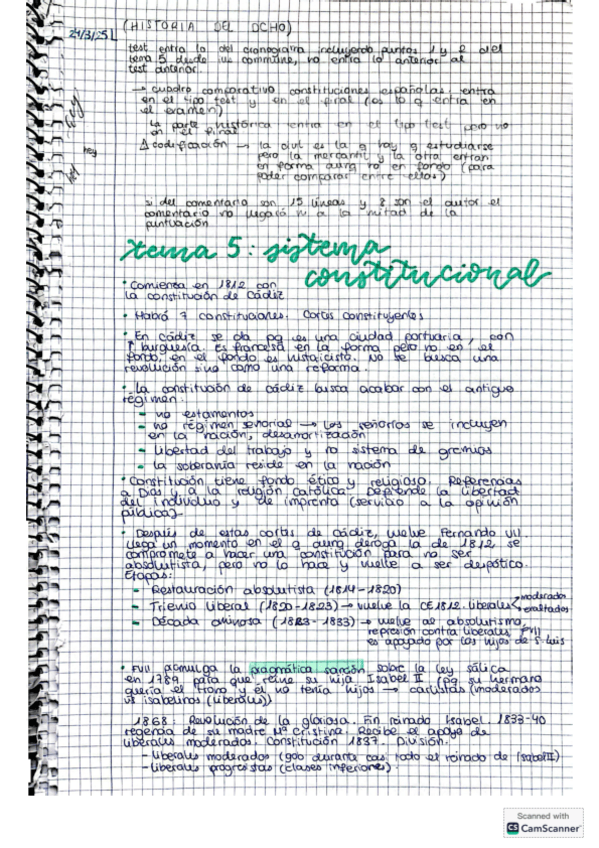 (HISTORIA DEL DCHO)
24/3/25
test entra lo del cronograma incluyendo puntos 1 y 2 del
tema 5 desde ius commune, no entra lo anterior al
test anterior.
→ cuadro comparativo constituciones españolas entra
en el tipo test y en el final (es lo q entra en
el examen)
La parte histórica entra en el tipo test pero no
en el final
△ codificación → la civil es la q hay q estudiarse
pero la mercantil y la otra entran
en forma aunq no en fondo (para
poder comparar entre ellos)
hey
hey
si del comentario son 15 líneas y 8 son el autor el
comentario no llegará ni a la mitad de la
puntuación
tema 5: sistema
constitucional
• Comienza en 1812 con
la constitución de Cádiz
• Habrá 7 constituciones. Cortes constituyentes
• En cádiz se da pq es una ciudad portuaria, con
↑ burguesía. Es francesa en la forma pero no en el
fondo en el fondo es historicista. No se busca una
revolución sino como una reforma.
• La constitución de cádiz busca acabar con el antiguo
régimen.
- no estamentos
- no régimen señorial → los señoríos se incluyen
en la nación, desamortización
- libertad del trabajo y no sistema de gremios
- la soberanía reside en la nación
• Constitución tiene fondo ético y religioso. Referencias
a Dios y a la religión católica. Defiende la libertad
del individuo y de imprenta (servicio a la opinión
pública).
• Después de estas cortes de cádiz, vuelve Fernando VII.
Llega un momento en el q aunq deroga la de 1812 se
compromete a hacer una constitución para no ser
absolutista, pero no lo hace y vuelve a ser despótico.
Etapas:
- Restauración absolutista (1814-1820)
- Trienio liberal (1820-1823) → vuelve la CE1812. liberales moderados exaltados
- Década ominosa (1823-1833) → vuelve al absolutismo,
represión contra liberales. FVII
es apoyado por los hijos de S. Luis
• FVII promulga la pragmática sanción sobre la ley sálica
en 1789 para que reine su hija Isabel II (pq su hermano
quería el trono y él no tenía hijos → carlistas (moderados
vs isabelinos (liberales))
1868: Revolución de la gloriosa. En reinado Isabel. 1833-40
regencia de su madre Mª Cristina. Recibe el apoyo de
liberales moderados. Constitución 1837. División.
- Liberales moderados (gob durante casi todo el reinado de Isabel II)
- Liberales progresistas (clases inferiores).
Scanned with
CS CamScanner